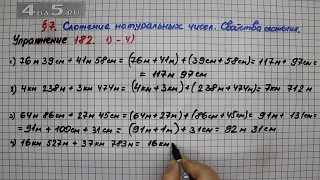 4на5.ru
§7. Сложение натуральных чисел. Свойства сложения.
Упражнение 182. 1) - 4)
1) 76м 39см + 41м 58см = (76м + 41м) + (39см + 58см) = 117м + 97см =
= 117м 97см
2) 4км 238м + 3км 474м = (4км + 3км) + (238м + 474м) = 7км 712м
3) 64м 86см + 27м 45см = (64м + 27м) + (86см + 45см) = 91м + 131см =
= 91м + 100см + 31см = (91м + 1м) + 31см = 92м 31см
4) 16км 527м + 37км 783м = 16км